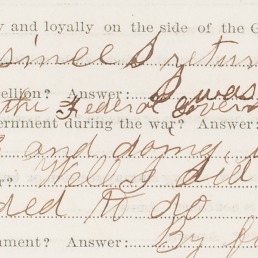 y and loyally on the side of the G
since I retur
ellion? Answer: I was
the Federal Govern
ernment during the war? Answer:
and doing
r? Wells did
ded to do
nment? Answer: By